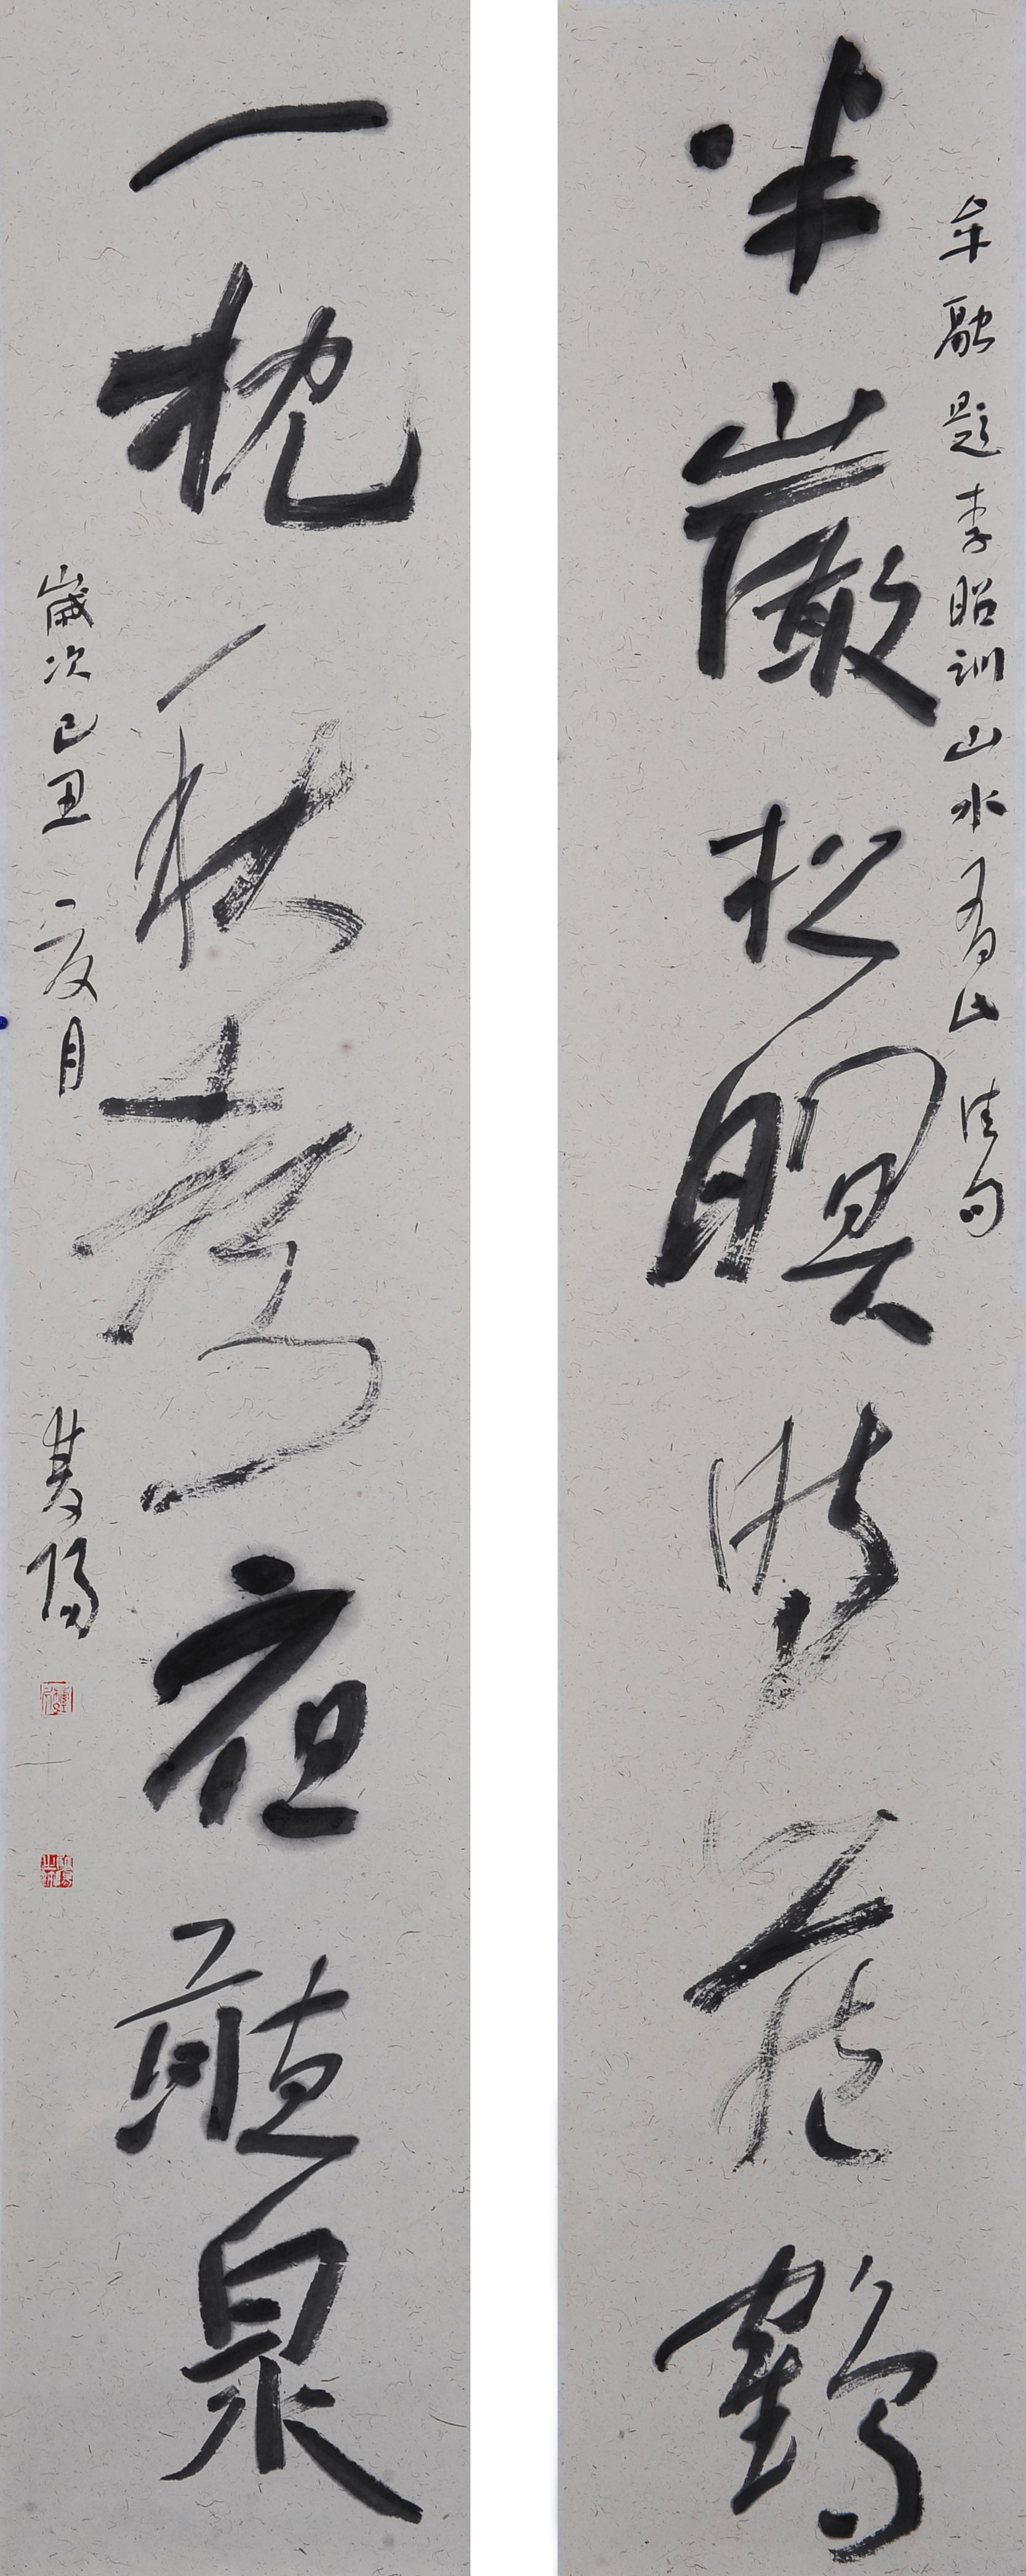 牟融題李昭訓山水有此佳句
半巖松暝時藏鶴
一枕秋聲夜聽泉
歲次己丑夏月